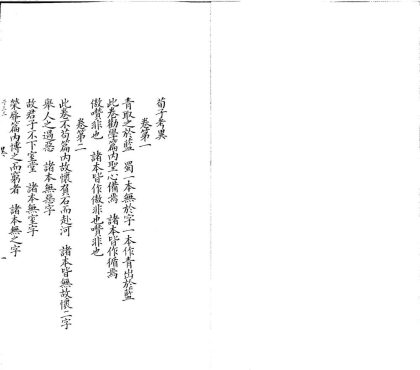 荀子考異
卷第一
青取之於藍 蜀一本無於字一本作青出於藍
此卷勸學篇內聖心備焉 諸本皆作循焉
傲囋非也 諸本皆作傲非也囋非也
卷第二
此卷不苟篇內故懷負石而赴河 諸本皆無故懷二字
舉人之過惡 諸本無惡字
故君子不下室堂 諸本無室字
榮辱篇內博之而窮者 諸本無之字
一